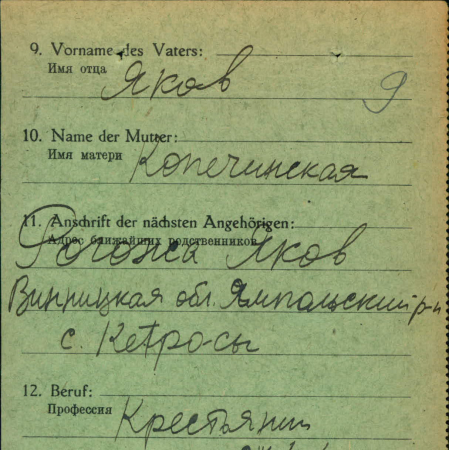 9. Vorname des Vaters:
Имя отца
Яков
9
10. Name der Mutter:
Имя матери
Копечинская
11. Anschrift der nächsten Angehörigen:
Адрес ближайших родственников
Яков
Винницкая обл. Ямпольский р-н
с. Кетро-сы
12. Beruf:
Профессия
Крестьянин